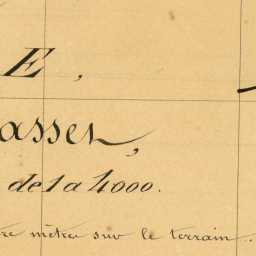 E,
asses,
de 1 a 4000.
re mètre sur le terrain.